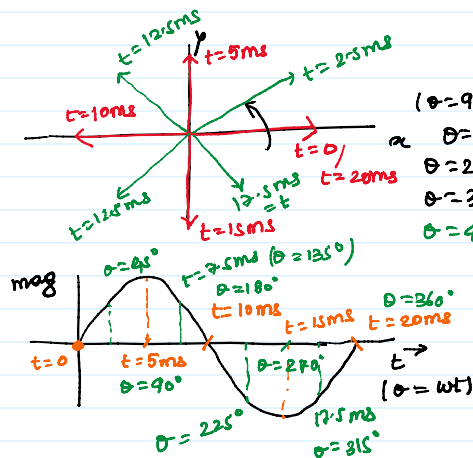 y
t=12.5ms
t=5ms
t=2.5ms
t=10ms
t=0/
t=20ms
x
17.5ms
=t
t=12.5ms
t=15ms
(θ=9
θ=
θ=2
θ=3
θ=4
mag
θ=45°
t=7.5ms (θ=135°)
θ=180°
t=10ms
t=15ms
θ=360°
t=20ms
t=0
t=5ms
θ=90°
θ=270°
t →
(θ=wt)
θ=225°
17.5ms
θ=315°